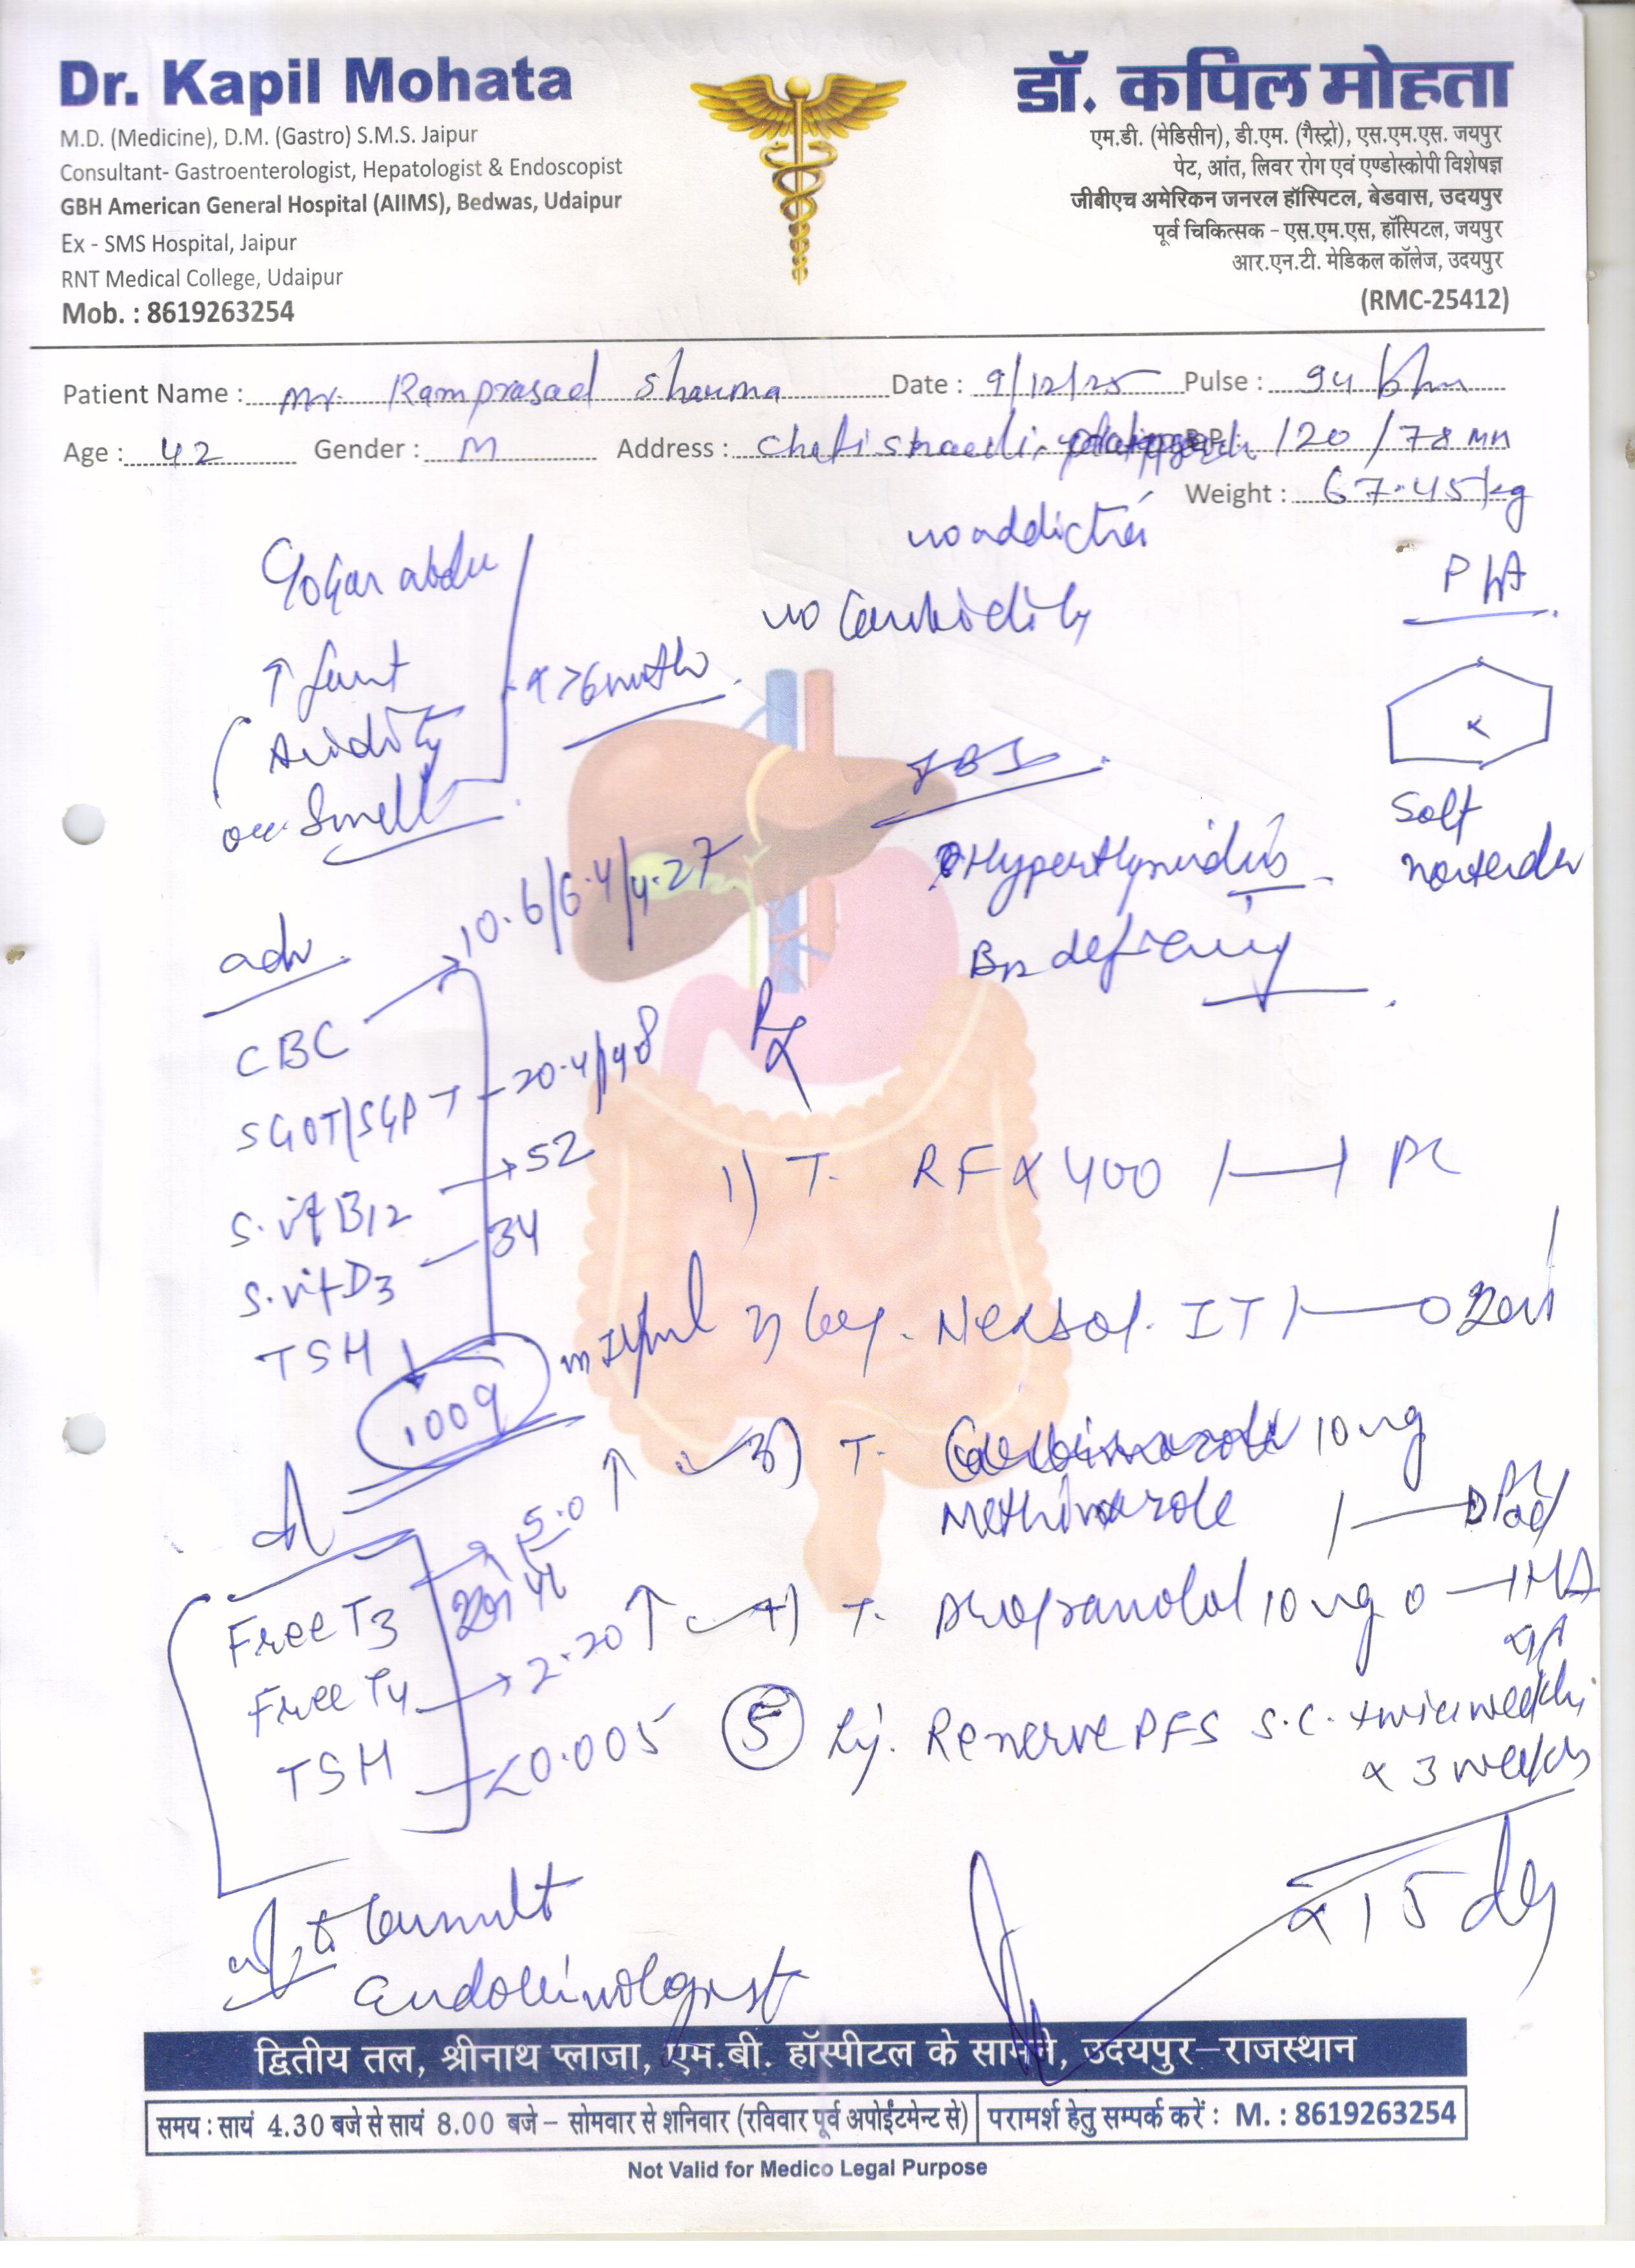 Dr. Kapil Mohata
M.D. (Medicine), D.M. (Gastro) S.M.S. Jaipur
Consultant- Gastroenterologist, Hepatologist & Endoscopist
GBH American General Hospital (AIIMS), Bedwas, Udaipur
Ex - SMS Hospital, Jaipur
RNT Medical College, Udaipur
Mob. : 8619263254
डॉ. कपिल मोहता
एम.डी. (मेडिसीन), डी.एम. (गैस्ट्रो), एस.एम.एस. जयपुर
पेट, आंत, लिवर रोग एवं एण्डोस्कोपी विशेषज्ञ
जीबीएच अमेरिकन जनरल हॉस्पिटल, बेडवास, उदयपुर
पूर्व चिकित्सक - एस.एम.एस, हॉस्पिटल, जयपुर
आर.एन.टी. मेडिकल कॉलेज, उदयपुर
(RMC-25412)
Patient Name : Mr. Ramprasad Sharma Date : 9/12/25 Pulse : 94
Age : 42 Gender : M Address : B.P. : 120/78
Weight : 67.45 kg
no addiction
P/A
↑
Acidity
Smell
soft
Hyperthyroidis
B12 deficiency
adv
CBC → 10.6/6.4/4.27
SGOT/SGPT - 20.4/48
S. vit B12 → 52
S. vit D3 - 34
TSH
.009
Rx
1) T. RFX 400
2) Nexsol. IT
3) T. 10 mg
Methimazole
4) T. Propranolol 10 mg
5 Inj. Renerve PFS S.C. twice weekly
x 3 weeks
Free T3 → 5.0 ↑
Free T4 → 2.20 ↑
TSH - <0.005
x 15 day
Endocrinologist
द्वितीय तल, श्रीनाथ प्लाजा, एम.बी. हॉस्पीटल के सामने, उदयपुर-राजस्थान
समय : सायं 4.30 बजे से सायं 8.00 बजे - सोमवार से शनिवार (रविवार पूर्व अपोईंटमेन्ट से) परामर्श हेतु सम्पर्क करें : M. : 8619263254
Not Valid for Medico Legal Purpose